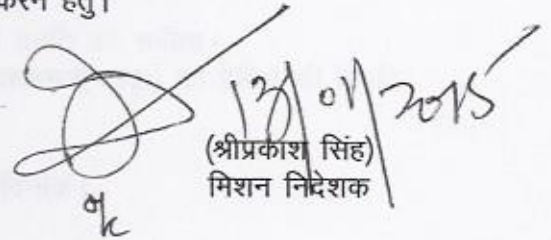 करने हेतु।
13/01/2015
(श्रीप्रकाश सिंह)
मिशन निदेशक